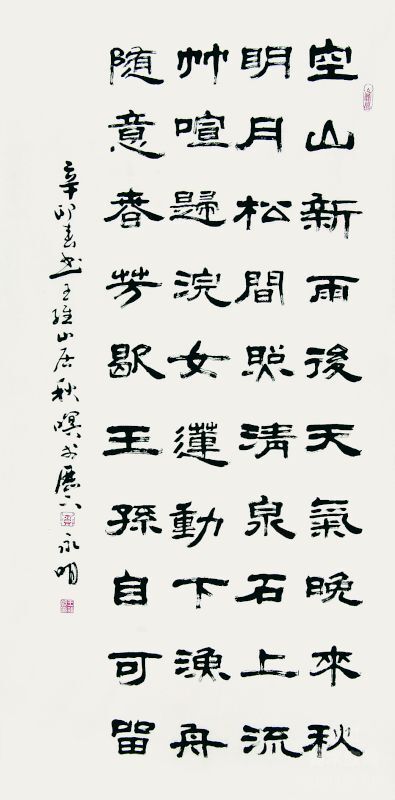 空山新雨後天氣晚來秋
明月松間照清泉石上流
竹喧歸浣女蓮動下漁舟
随意春芳歇王孫自可留
辛卯春书王維山居秋暝於歷下永明